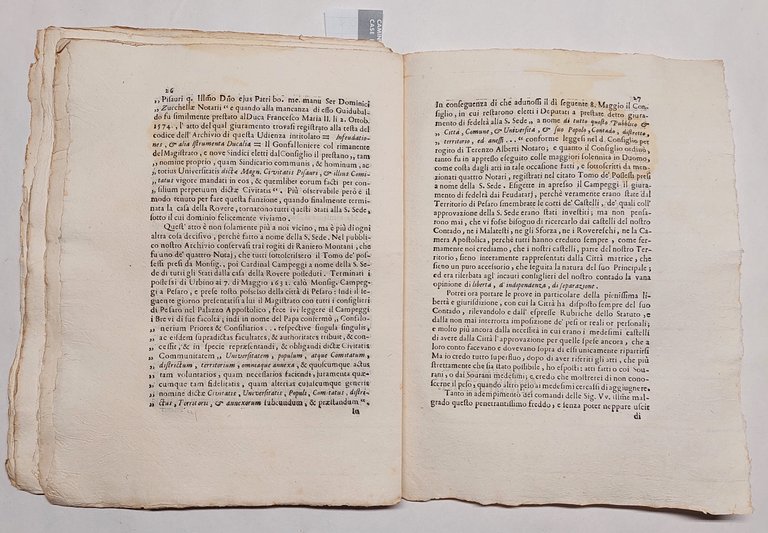 CASE
26
„ Pisauri q. Illmo Dño ejus Patri bo. me. manu Ser Dominici
„ Zucchellæ Notarii “ e quando alla mancanza di esso Guidubal-
do fu similmente prestato al Duca Francesco Maria II. li 2. Ottob.
1574, l'atto del qual giuramento trovasi registrato alla testa del
codice dell'Archivio di questa Udienza intitolato = Infeudatio-
nes, & alia istrumenta Ducalia = Il Gonfalloniere col rimanente
del Magistrato, e nove Sindici eletti dal Consiglio il prestano, tam
„ nomine proprio, quam Sindicario communis, & hominum, ac
„ totius Universitatis dictæ Magn. Civitatis Pisauri, & illius Comi-
„ tatus vigore mandati in eos, & quemlibet eorum facti per con-
„ silium perpetuum dictæ Civitatis “. Più osservabile però è il
modo tenuto per fare questa funzione, quando finalmente termi-
nata la casa della Rovere, tornarono tutti questi Stati alla S. Sede,
sotto il cui dominio felicemente viviamo.
Quest' atto è non solamente più a noi vicino, ma è più di ogni
altra cosa decisivo, perchè fatto a nome della S. Sede. Nel pubbli-
co nostro Archivio conservasi tra i rogiti di Raniero Montani, che
fu uno de' quattro Notaj, che tutti sottoscrissero il Tomo de' pos-
sessi presi da Monsig., poi Cardinal Campeggi a nome della S. Se-
de di tutti gli Stati dalla Casa della Rovere posseduti. Terminati i
possessi di Urbino ai 7. di Maggio 1631. calò Monsig. Campeg-
gi a Pesaro, e prese tosto possesso della città di Pesaro: Indi il se-
guente giorno presentatisi a lui il Magistrato con tutti i consiglieri
di Pesaro nel Palazzo Appostolico, fece ivi leggere il Campeggi
i Brevi di sue facoltà, indi in nome del Papa confermò „ Confalo-
„ nerium Priores & Consiliarios . . respective singula singulis,
„ ac eisdem supradictas facultates, & authoritates tribuit, & con-
„ cessit, & in specie repræsentandi, & obligandi dictæ Civitatis
„ Communitatem, Universitatem, populum, atque Comitatum,
„ districtum, territorium, omniaque annexa, & quoscumque actus
„ tam voluntarios, quam necessarios faciendi, juramenta quæ-
„ cumque tam fidelitatis, quam alterius cujuscumque generis
„ nomine dictæ Civitatis, Universitatis, Populi, Comitatus, distri-
„ ctus, Territorii, & annexorum subeundum, & præstandum “.
In
27
In conseguenza di che adunossi il dì seguente 8. Maggio il Con-
siglio, in cui restarono eletti i Deputati a prestare detto giura-
mento di fedeltà alla S. Sede, a nome di tutto questo Pubblico &
„ Città, Comune, & Università, & suo Popolo, Contado, distretto,
„ territorio, ed annessi . . . conforme leggesi nel d. Consiglio per
rogito di Terenzo Alberti Notaro; e quanto il Consiglio ordinò,
tanto fu in appresso eseguito colle maggiori solennità in Duomo,
come costa dagli atti in tale occasione fatti, e sottoscritti da men-
zionati quattro Notari, registrati nel citato Tomo de' Possessi presi
a nome della S. Sede. Esigette in apresso il Campeggi il giura-
mento di fedeltà dai Feudatarj, perchè veramente erano state dal
Territorio di Pesaro smembrate le corti de' Castelli, de' quali coll'
approvazione della S. Sede erano stati investiti; ma non pensa-
rono mai, che vi fosse bisogno di ricercarlo dai castelli del nostro
Contado, ne i Malatesti, ne gli Sforza, ne i Rovereschi, ne la Ca-
mera Apostolica, perchè tutti hanno creduto sempre, come fer-
mamente noi crediamo, che i nostri castelli, parte del nostro Ter-
ritorio, sieno interamente rappresentati dalla Città matrice, che
sieno un puro accessorio, che seguita la natura del suo Principale;
ed era riserbata agl'incauti consiglieri del nostro contado la vana
opinione di libertà, d' independenza, di separazione.
Potrei ora portare le prove in particolare della pienissima li-
bertà e giurisdizione, con cui la Città ha disposto sempre del suo
Contado, rilevandole e dall' espresse Rubriche dello Statuto, e
dalla non mai interrotta imposizione de' pesi or reali or personali;
e molto più ancora dalla necessità in cui erano i medesimi castelli
di avere dalla Città l'approvazione per quelle spese ancora, che a
loro conto facevano e dovevano sopra di essi unicamente ripartirsi
Ma io credo tutto superfluo, dopo di aver riferiti gli atti, che più
strettamente che sia stato possibile, ho esposti: atti fatti o coi Sou-
rani, o dai Sourani medesimi; e credo che mostrerei di non cono-
scerne il peso, quando altro peso ai medesimi cercassi di aggiugnere.
Tanto in adempimento dei comandi delle Sig. Vv. illme mal-
grado questo penetrantissimo freddo, e senza poter neppure uscit
di